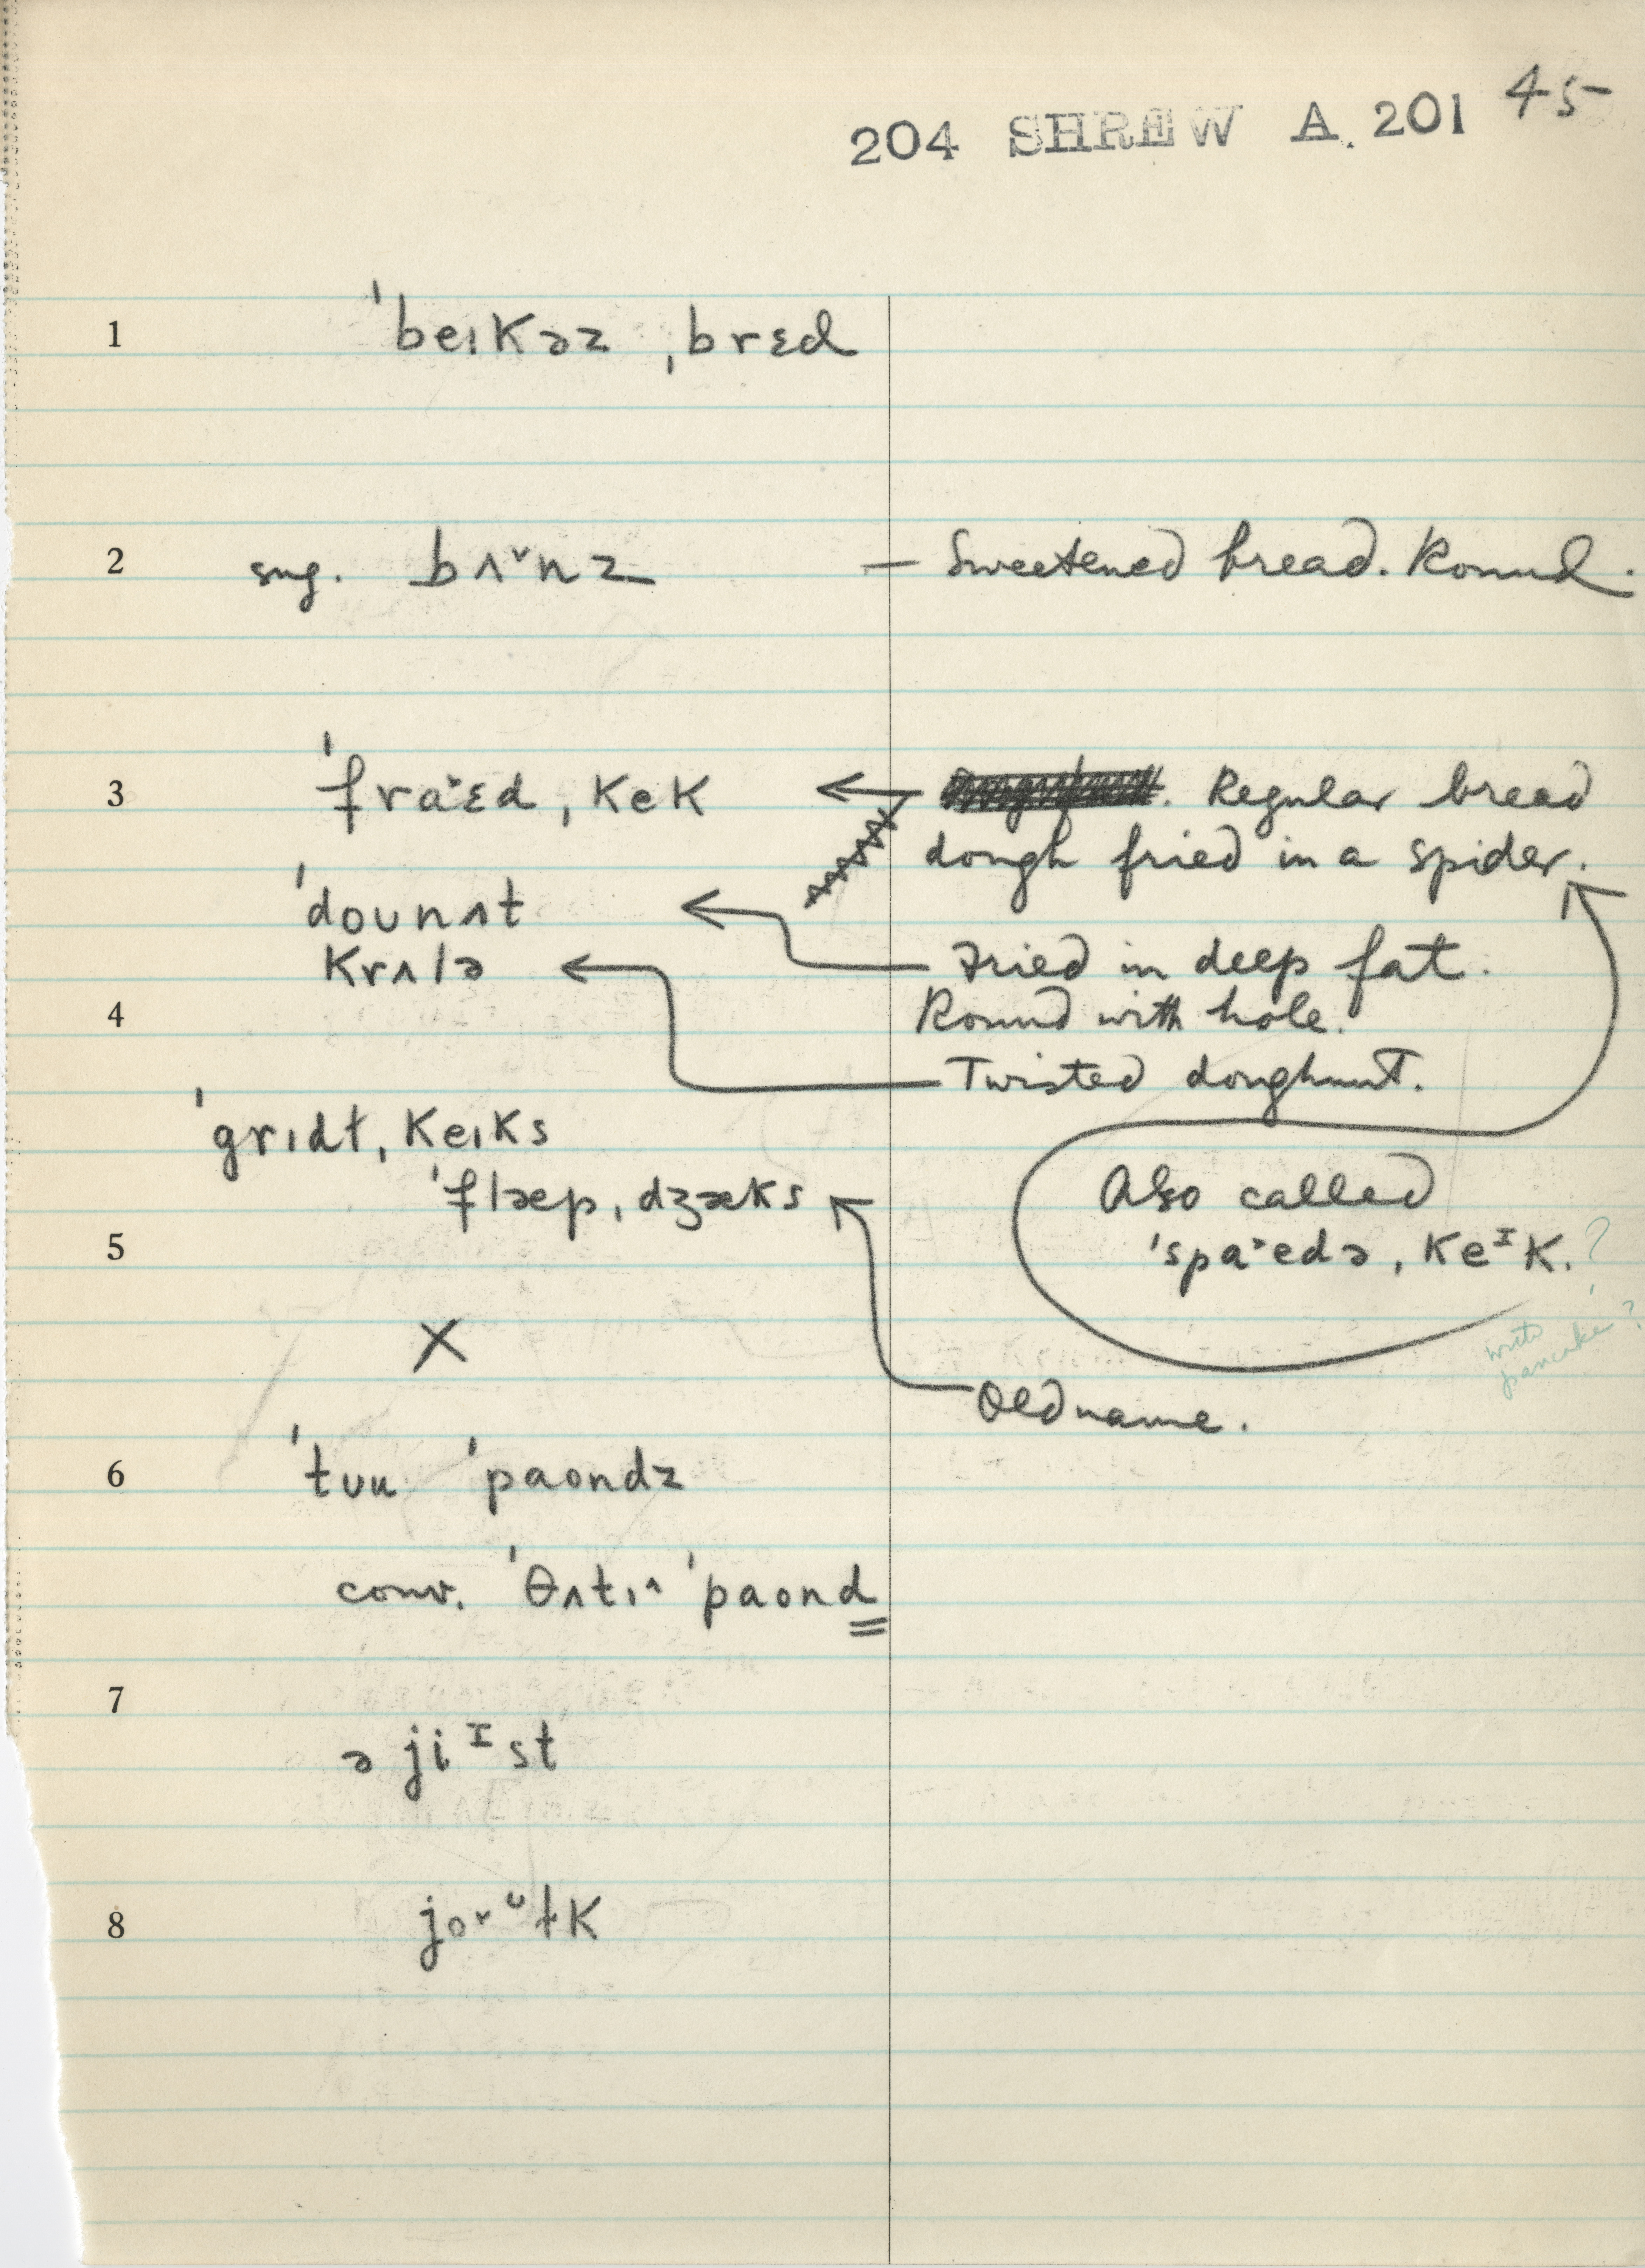 204 SHREW A. 201 45
1 ˈbeɪkəz ˌbrɛd
2 sug. bʌ˅nz — Sweetened bread. Round.
3 ˈfraˑɛd ˌkek ← Regular bread
dough fried in a spider.
ˈdoʊnʌt ← Fried in deep fat.
krʌlə ← Round with hole.
4
Twisted doughnut.
ˈgrɪdɫ ˌkeɪks
ˈflæp ˌdʒæks
Also called
5 ˈspaˑedə ˌkeᴵk. ?
X
write pancake?
Old name.
6 ˈtʊu ˈpaondz
conv. ˈθʌtɪ˄ ˈpaond
7
ə jiᴵst
8 jo˅ᶷɫk